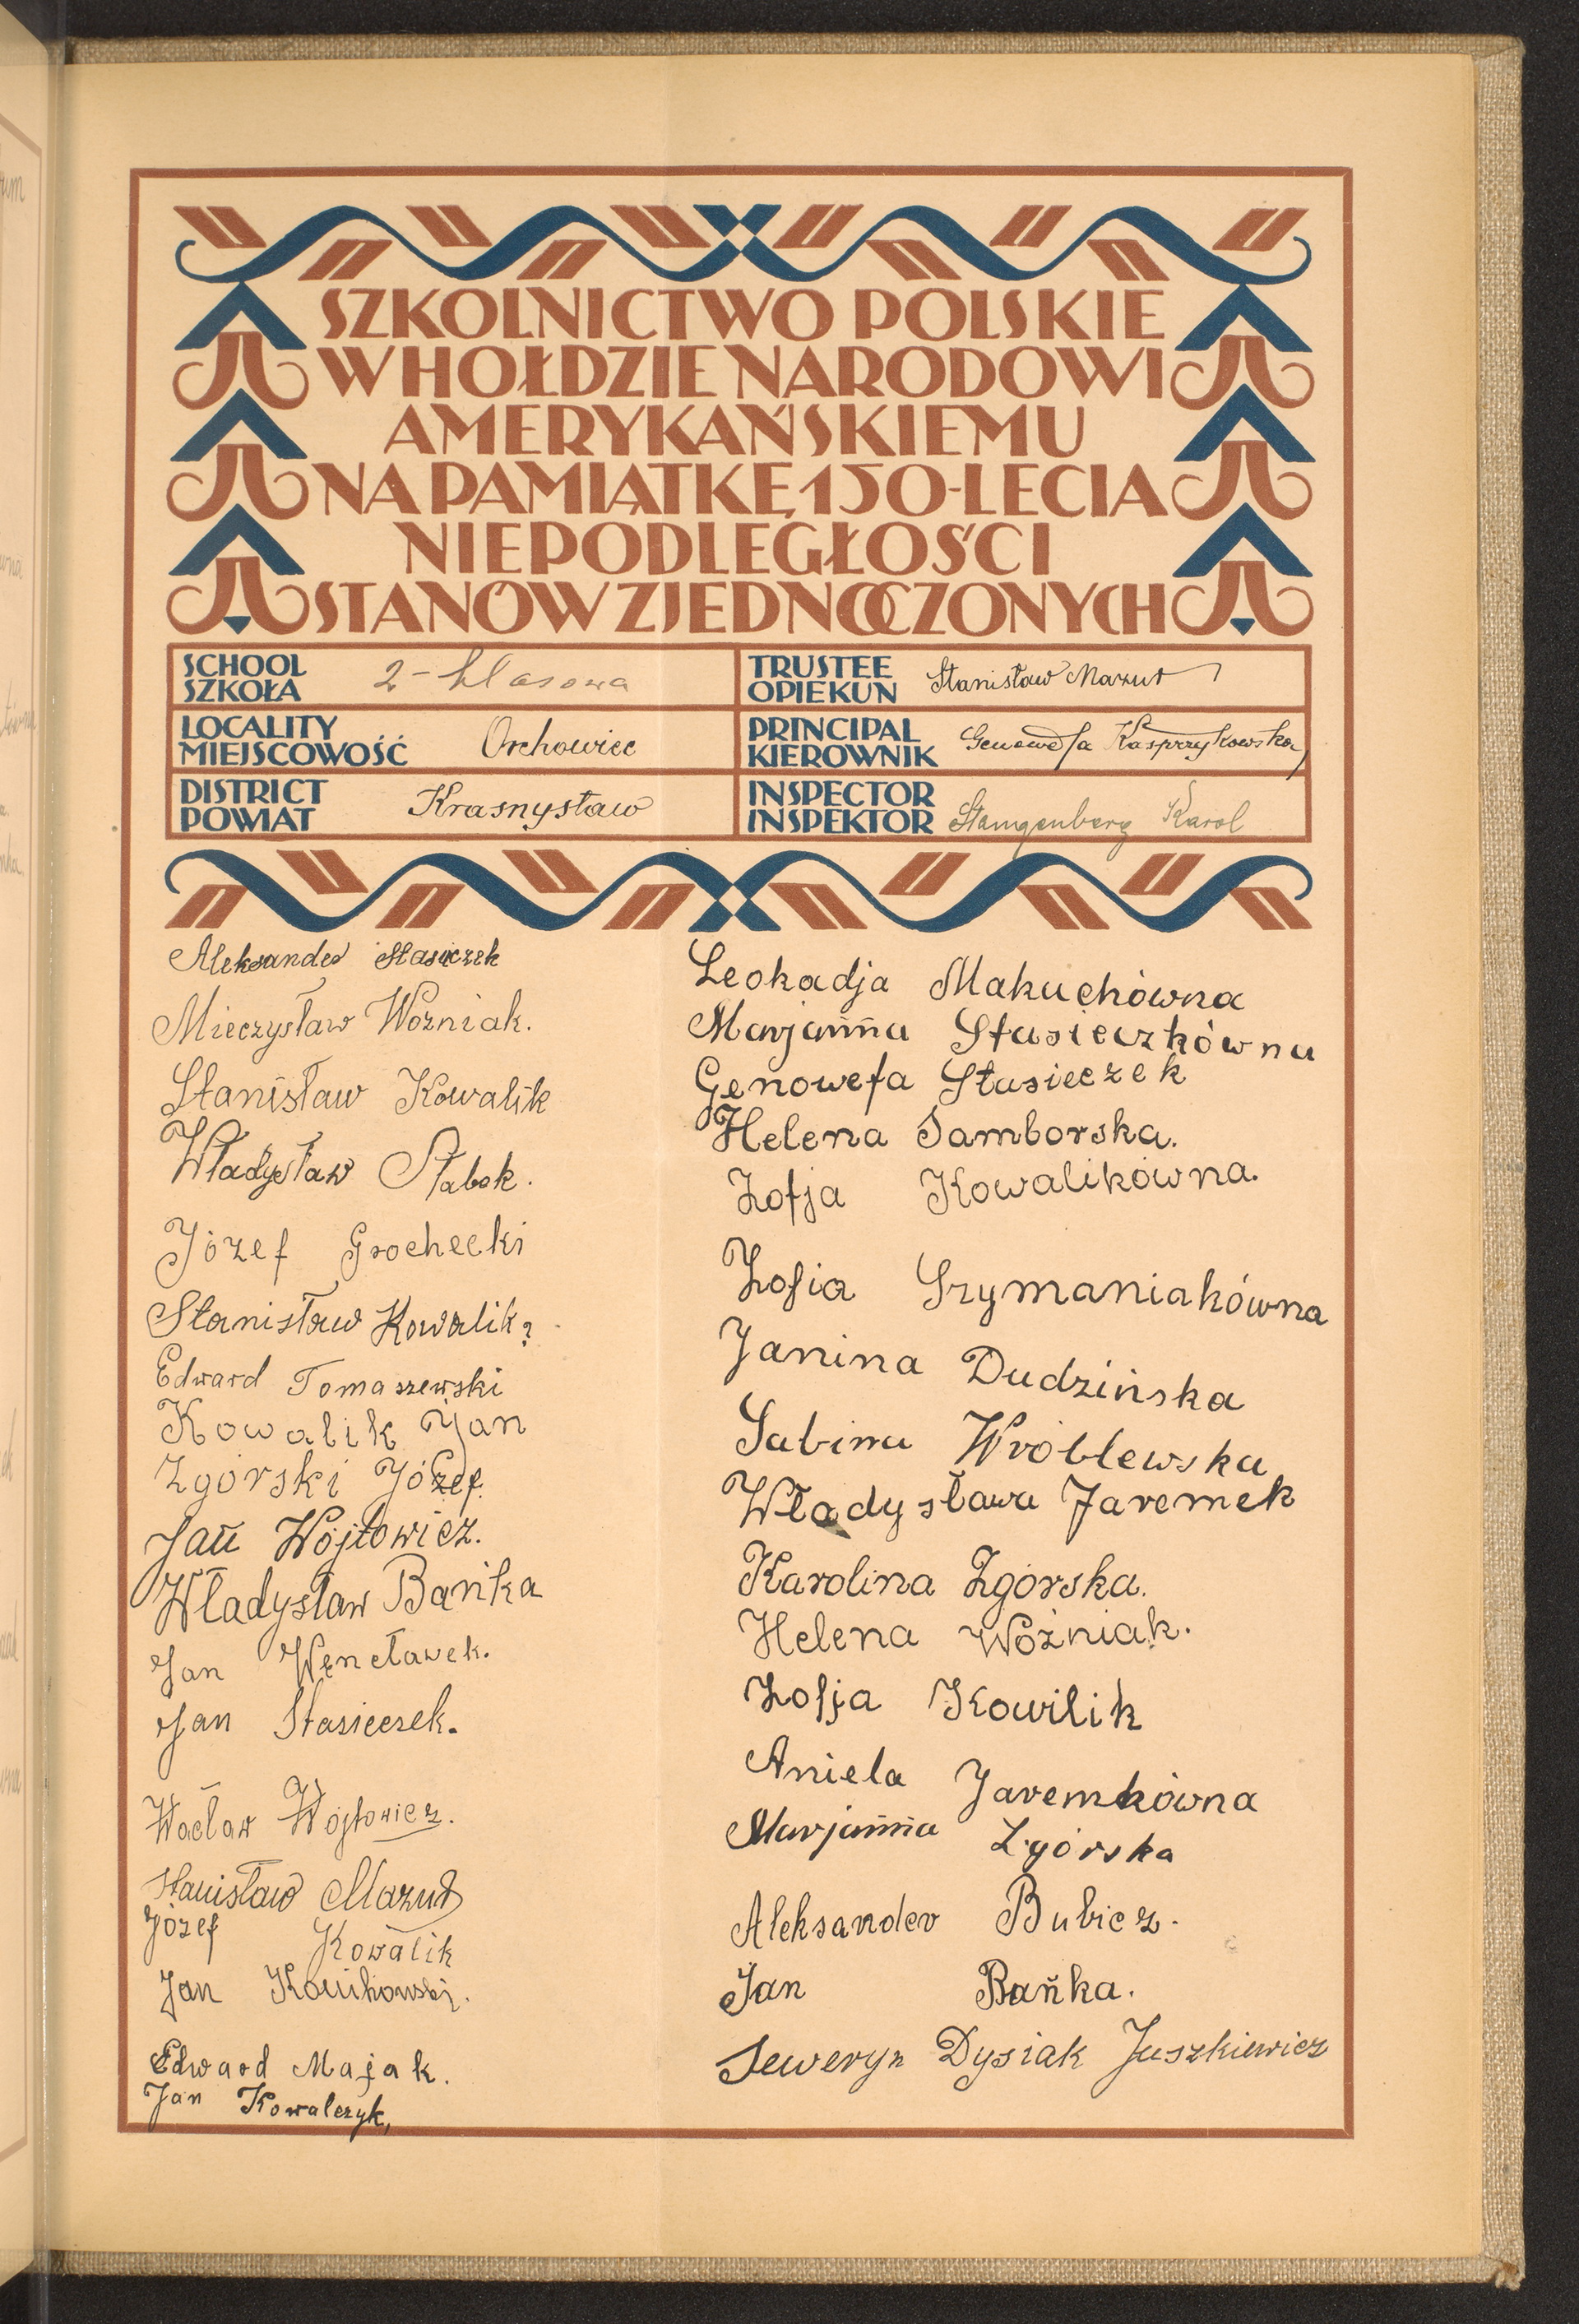 SZKOLNICTWO POLSKIE
W HOŁDZIE NARODOWI
AMERYKAŃSKIEMU
NA PAMIĄTKĘ 150-LECIA
NIEPODLEGŁOŚCI
STANÓW ZJEDNOCZONYCH
SCHOOL
SZKOŁA
2-klasowa
TRUSTEE
OPIEKUN
Stanisław Mazur
LOCALITY
MIEJSCOWOŚĆ
Orchowiec
PRINCIPAL
KIEROWNIK
Genowefa Kasprzykowska
DISTRICT
POWIAT
Krasnystaw
INSPECTOR
INSPEKTOR
Stangenberg Karol
Aleksander Stasieczek
Mieczysław Wożniak.
Stanisław Kowalik
Władysław Słabok.
Józef Grochecki
Stanisław Kowalik
Edward Tomaszewski
Kowalik Jan
Zgórski Józef.
Jan Wójtowicz.
Władysław Bańka
Jan Węncławek.
Jan Stasieczek.
Wacław Wójtowicz.
Stanisław Mazur
Józef Kowalik
Jan
Edward Majak.
Jan Kowalczyk,
Leokadja Makuchówna
Marjanna Stasieczkówna
Genowefa Stasieczek
Helena Samborska.
Zofja Kowalikówna.
Zofia Szymaniakówna
Janina Dudzińska
Sabina Wróblewska
Władysława Jaremek
Karolina Zgórska.
Helena Wożniak.
Zofja Kowilik
Aniela Jaremkówna
Marjanna Zgórska
Aleksander Bubicz.
Jan Bańka.
Seweryn Dysiak Juszkiewicz